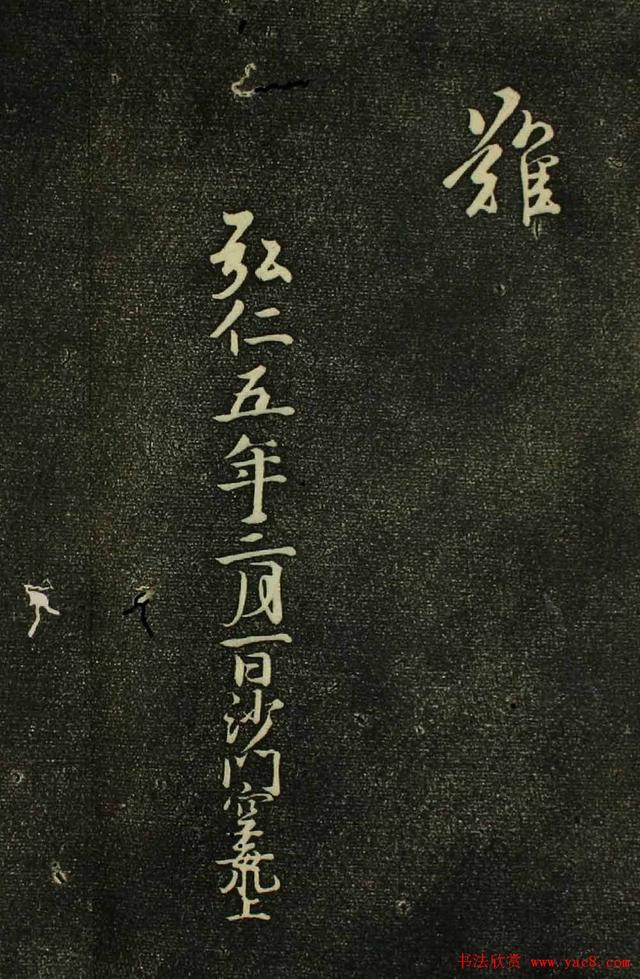 難
弘仁五年三月一日沙門空海上
书法欣赏 www.yac8.com